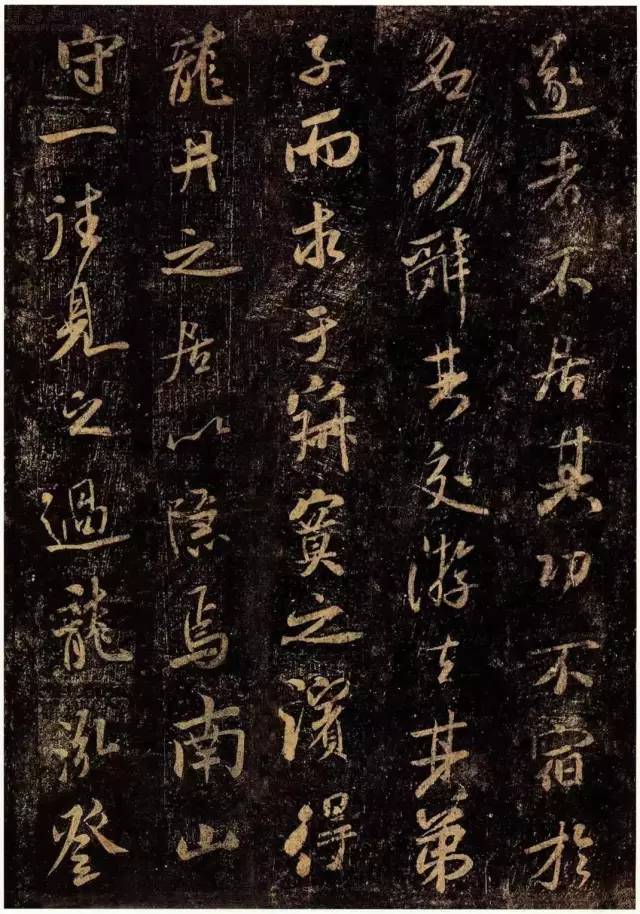 遂者不居其功不宿於
名乃辭其交游去其弟
子而求于寂寞之濱得
龍井之居以隐焉南山
守一往見之過龍泓登